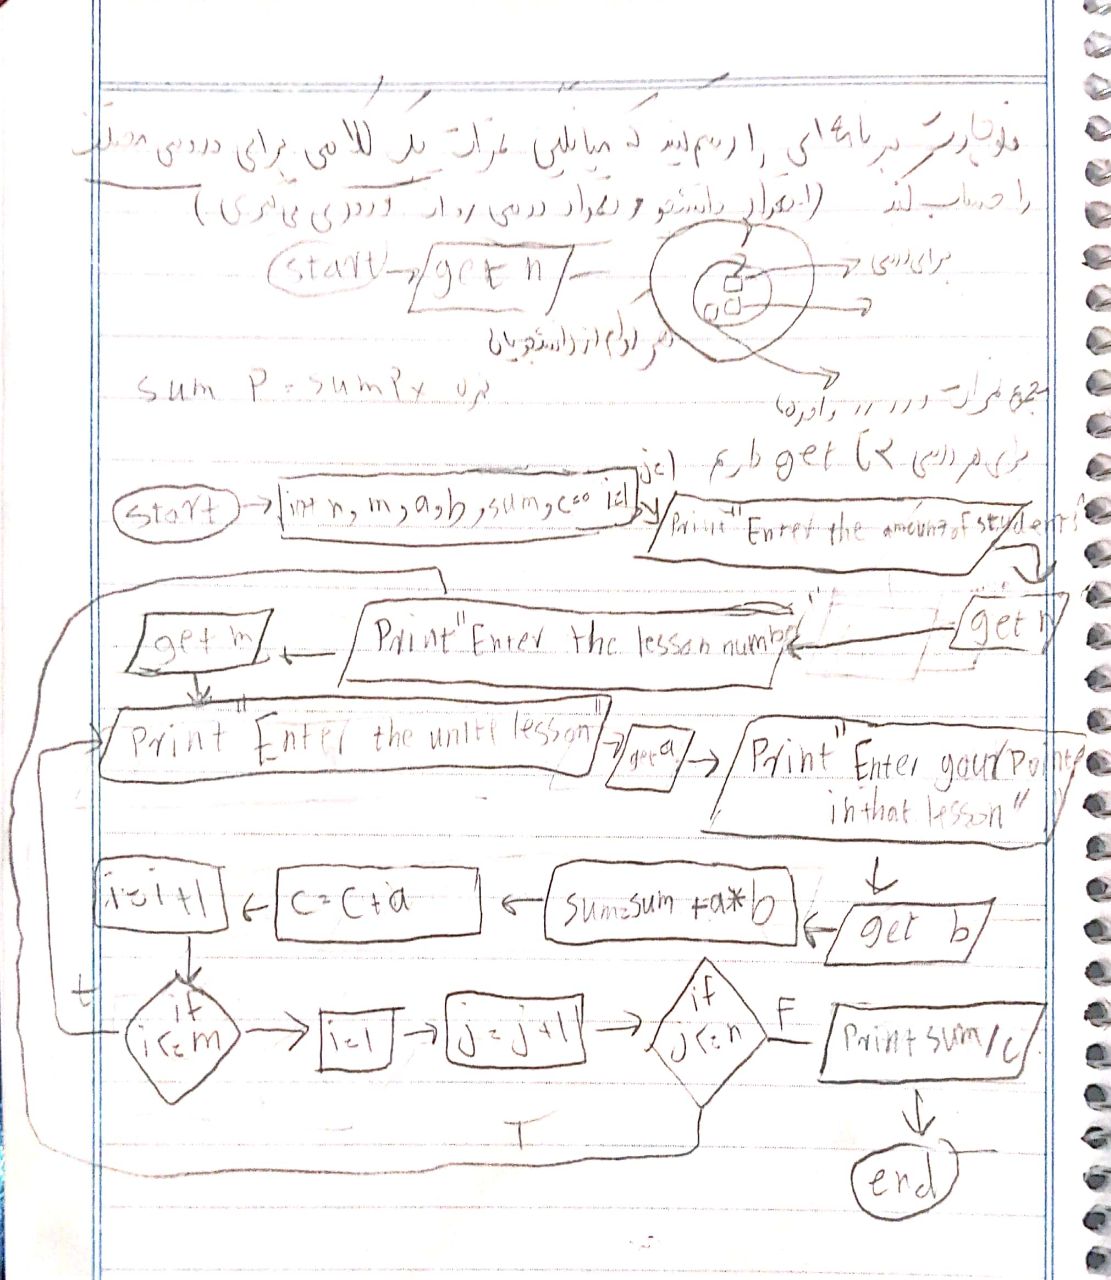 فلوچارت برنامه ای را رسم کنید که میانگین نمرات یک کلاس برای دروس مختلف
را حساب کند (تعداد دانشجو و تعداد درس را از ورودی می گیری)
start get n
برای درس
هر کدام از دانشجویان
sum P = sum P x نمره
مجموع نمرات
برای هر درس 2 تا get داریم
j=1
start int n, m, a, b, sum, c=0 i=1 Print "Enter the amount of students"
get m Print "Enter the lesson number" get n
Print "Enter the unite lesson" get a Print "Enter your Point
in that lesson"
i=i+1 c=c+a sum=sum+a*b get b
t if i<=m i=1 j=j+1 if j<=n F Print sum/c
T
end